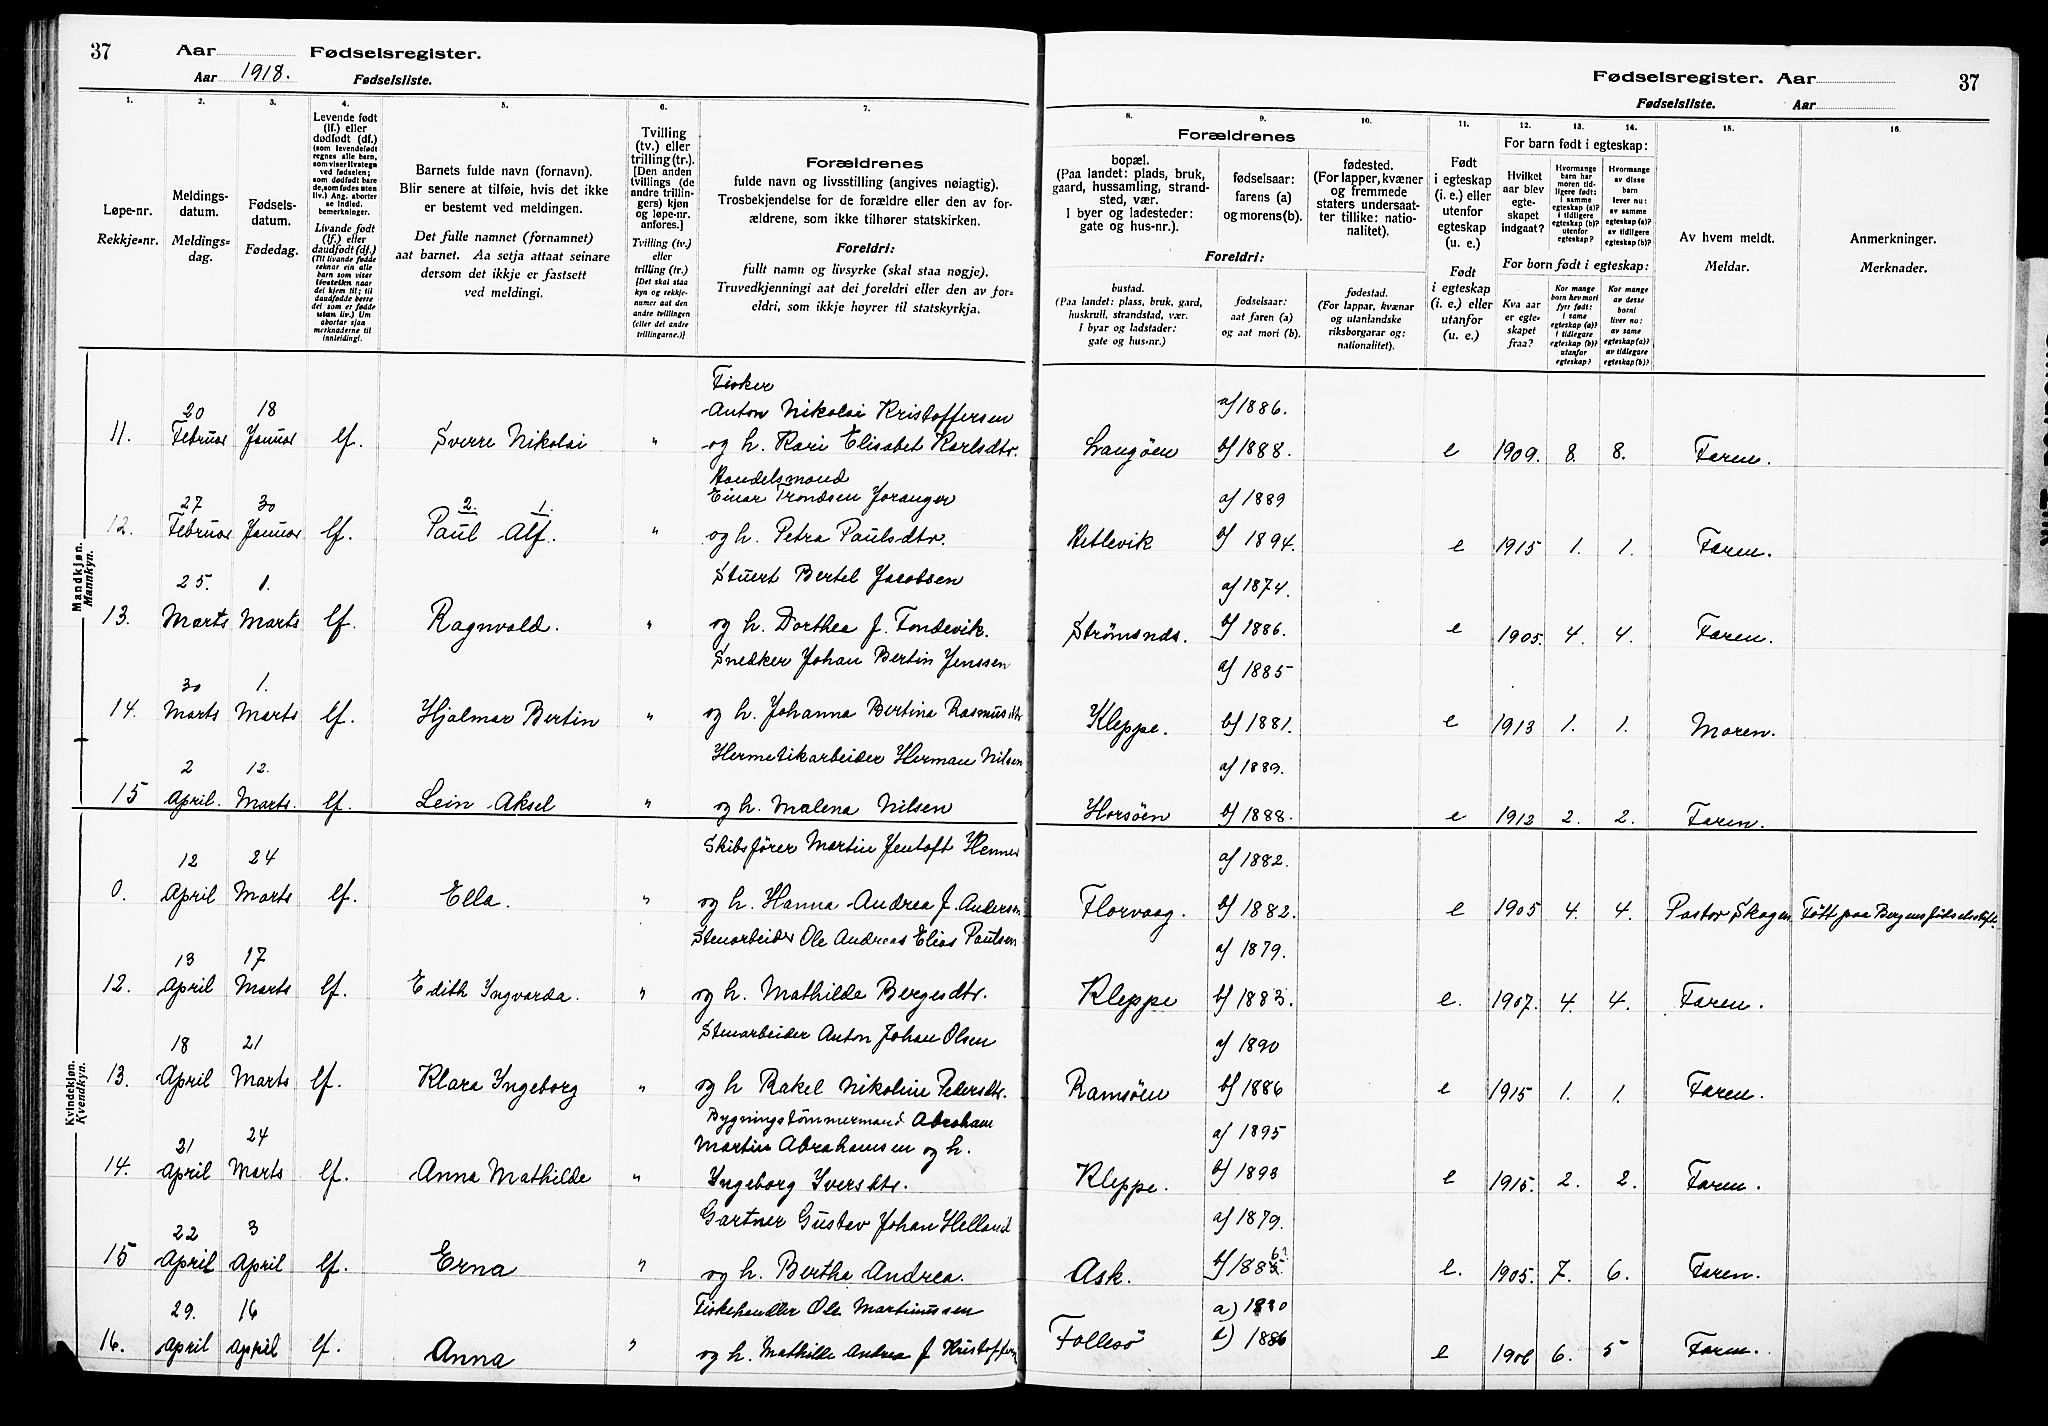 37
Aar
Fødselsregister.
Aar 1918. Fødselsliste.
Fødselsregister. Aar
37
Fødselsliste. Aar
1. 2. 3. 4. 5. 6. 7. 8. 9. 10. 11. 12. 13. 14. 15. 16.
Løpe-nr.
Rekkje=nr.
Meldings-
datum.
Meldings=
dag.
Fødsels-
datum.
Fødedag.
Levende født
(lf.) eller
dødfødt (df.)
Livande født
(lf.) eller
daudfødt (df.)
Barnets fulde navn (fornavn).
Blir senere at tilføie, hvis det ikke
er bestemt ved meldingen.
Det fulle namnet (fornamnet)
aat barnet. Aa setja attaat seinare
dersom det ikkje er fastsett
ved meldingi.
Tvilling
(tv.) eller
trilling (tr.).
[Den anden
tvillings (de
andre trillin-
gers) kjøn
og løpe-nr.
anføres.]
Tvilling (tv.)
eller
trilling (tr.)
[Det skal staa
kyn og rekkje-
numer aat den
andre tvillingen
(eller dei andre
trillingarne.)]
Forældrenes
fulde navn og livsstilling (angives nøiagtig).
Trosbekjendelse for de forældre eller den av for-
ældrene, som ikke tilhører statskirken.
Foreldri:
fullt namn og livsyrke (skal staa nøgje).
Truvedkjenningi aat dei foreldri eller den av for=
eldri, som ikkje høyrer til statskyrkja.
Forældrenes
bopæl.
(Paa landet: plads, bruk,
gaard, hussamling, strand-
sted, vær.
I byer og ladesteder:
gate og hus-nr.).
fødselsaar:
farens (a)
og morens (b).
fødested.
(For lapper, kvæner
og fremmede
staters undersaat-
ter tillike: natio-
nalitet).
Foreldri:
bustad.
(Paa landet: plass, bruk, gard,
huskrull, strandstad, vær.
I byar og ladstader:
gate og hus=nr.)
fødselsaar:
aat faren (a)
og aat mori (b).
fødestad.
(For lappar, kvænar
og utanlandske
riksborgarar og:
nationalitet).
Født
i egteskap
(i. e.) eller
utenfor
egteskap
(u. e.)
Født
i egteskap
(i. e.) eller
utanfor
(u. e.)
For barn født i egteskap:
Hvilket
aar blev
egte-
skapet
indgaat?
Hvormange
barn har
moren tid-
ligere født:
i samme
egteskap (a)?
i tidligere
egteskap (b)?
utenfor
egteskap?
Hvormange
av disse
barn
lever nu:
av samme
egteskap (a)?
av tidligere
egteskap (b)?
For born født i egteskap:
Kva aar
er egte-
skapet
fraa?
Kor mange
born hev mori
fyrr født:
i same
egteskap (a)?
i tidlegare
egteskap (b)?
utanfor
egteskap?
Kor mange
av desse
borni
liver no:
av same
egteskap (a)?
av tidlegare
egteskap (b)?
Av hvem meldt.
Meldar.
Anmerkninger.
Merknader.
Mandkjøn.
Mannkyn.
Fisker
20 18 Anton Nikolai Kristoffersen a) 1886.
11. Februar Januar lf. Sverre Nikolai " og h. Kari Elisabet Karlsdtr. Langøen b) 1888. e 1909. 8. 8. Faren.
Handelsmand
27 30 2. 1. Einar Trondsen Joranger a) 1889
12. Februar Januar lf. Paul Alf. " og h. Petra Paulsdtr. Hetlevik b) 1894. e 1915 1. 1. Faren.
25. 1. Stuert Bertel Jacobsen a) 1874.
13. Marts Marts lf. Ragnvald. " og h. Dorthea J. Tondevik. Strømsnds. b) 1886. e 1905. 4. 4. Faren.
30 1. Snedker Johan Bertin Jenssen a) 1885
14. Marts Marts lf. Hjalmar Bertin " og h. Johanna Bertina Rasmusdtr Kleppe. b) 1881. e 1913 1. 1. Moren.
2 12. Hermetikarbeider Herman Nilsen a) 1889.
15 April. Marts. lf. Lein Aksel " og h. Malena Nilsen Horsøen b) 1888. e 1912 2. 2. Faren.
Kvindekjøn.
Kvendkyn.
12 24 Skibsfører Martin Jentoft a) 1882.
0. April Marts lf. Ella. " og h. Hanna Andrea J. Andersen Florvaag. b) 1882. e 1905 4. 4. Pastor Skagen Født paa Bergens fødselsstift.
13 17 Stenarbeider Ole Andreas Elias Paulsen a) 1879.
12. April Marts lf. Edith Ingvarda. " og h. Mathilde Bergesdtr. Kleppe b) 1883. e. 1907. 4. 4. Faren.
18 21 Stenarbeider Anton Johan Olsen a) 1890
13. April Marts lf. Klara Ingeborg " og h Rakel Nikoline Pedersdtr. Ramsøen b) 1886 e 1915 1. 1. Faren.
Bygningstømmermand Abraham
21 24 Martin Abrahamsen og h. a) 1895
14. April Marts lf. Anna Mathilde " Ingeborg Iversdtr. Kleppe. b) 1893 e 1915. 2. 2. Faren.
22 3 Gartner Gustav Johan Helland a) 1879.
15 April April lf. Erna " og h. Bertha Andrea. Ask. b) 1885. 6? e. 1905. 7. 6. Faren.
29. 16 Fiskehandler Ole Martinussen a)
16. April April lf. Anna " og h. Mathilde Andrea J Kristoffersen Follesø b) 1886 e 1906 6. 5 Faren.